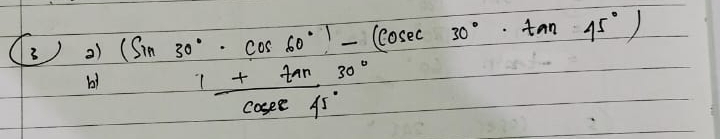 (3) a) (Sin 30° · cos 60°) - (Cosec 30° · tan 45°)
b) 1 + tan 30°
cosec 45°